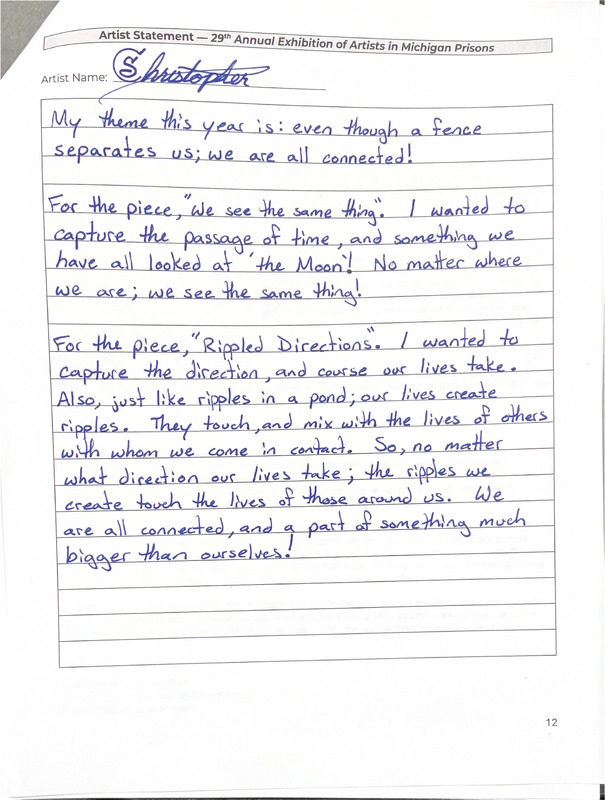 Artist Statement — 29th Annual Exhibition of Artists in Michigan Prisons
Artist Name: Shristopher
My theme this year is: even though a fence
separates us; we are all connected!
For the piece, "We see the same thing". I wanted to
capture the passage of time, and something we
have all looked at 'the Moon'! No matter where
we are; we see the same thing!
For the piece, "Rippled Directions". I wanted to
capture the direction, and course our lives take.
Also, just like ripples in a pond; our lives create
ripples. They touch, and mix with the lives of others
with whom we come in contact. So, no matter
what direction our lives take; the ripples we
create touch the lives of those around us. We
are all connected, and a part of something much
bigger than ourselves!
12